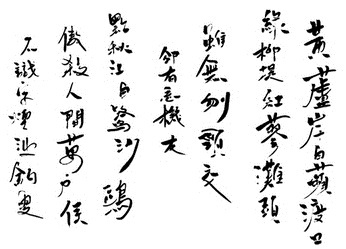 黃蘆岸白蘋渡口
綠柳堤紅蓼灘頭
雖無刎頸交
卻有忘機友
點秋江白鷺沙鷗
傲殺人間萬戶侯
不識字煙波釣叟